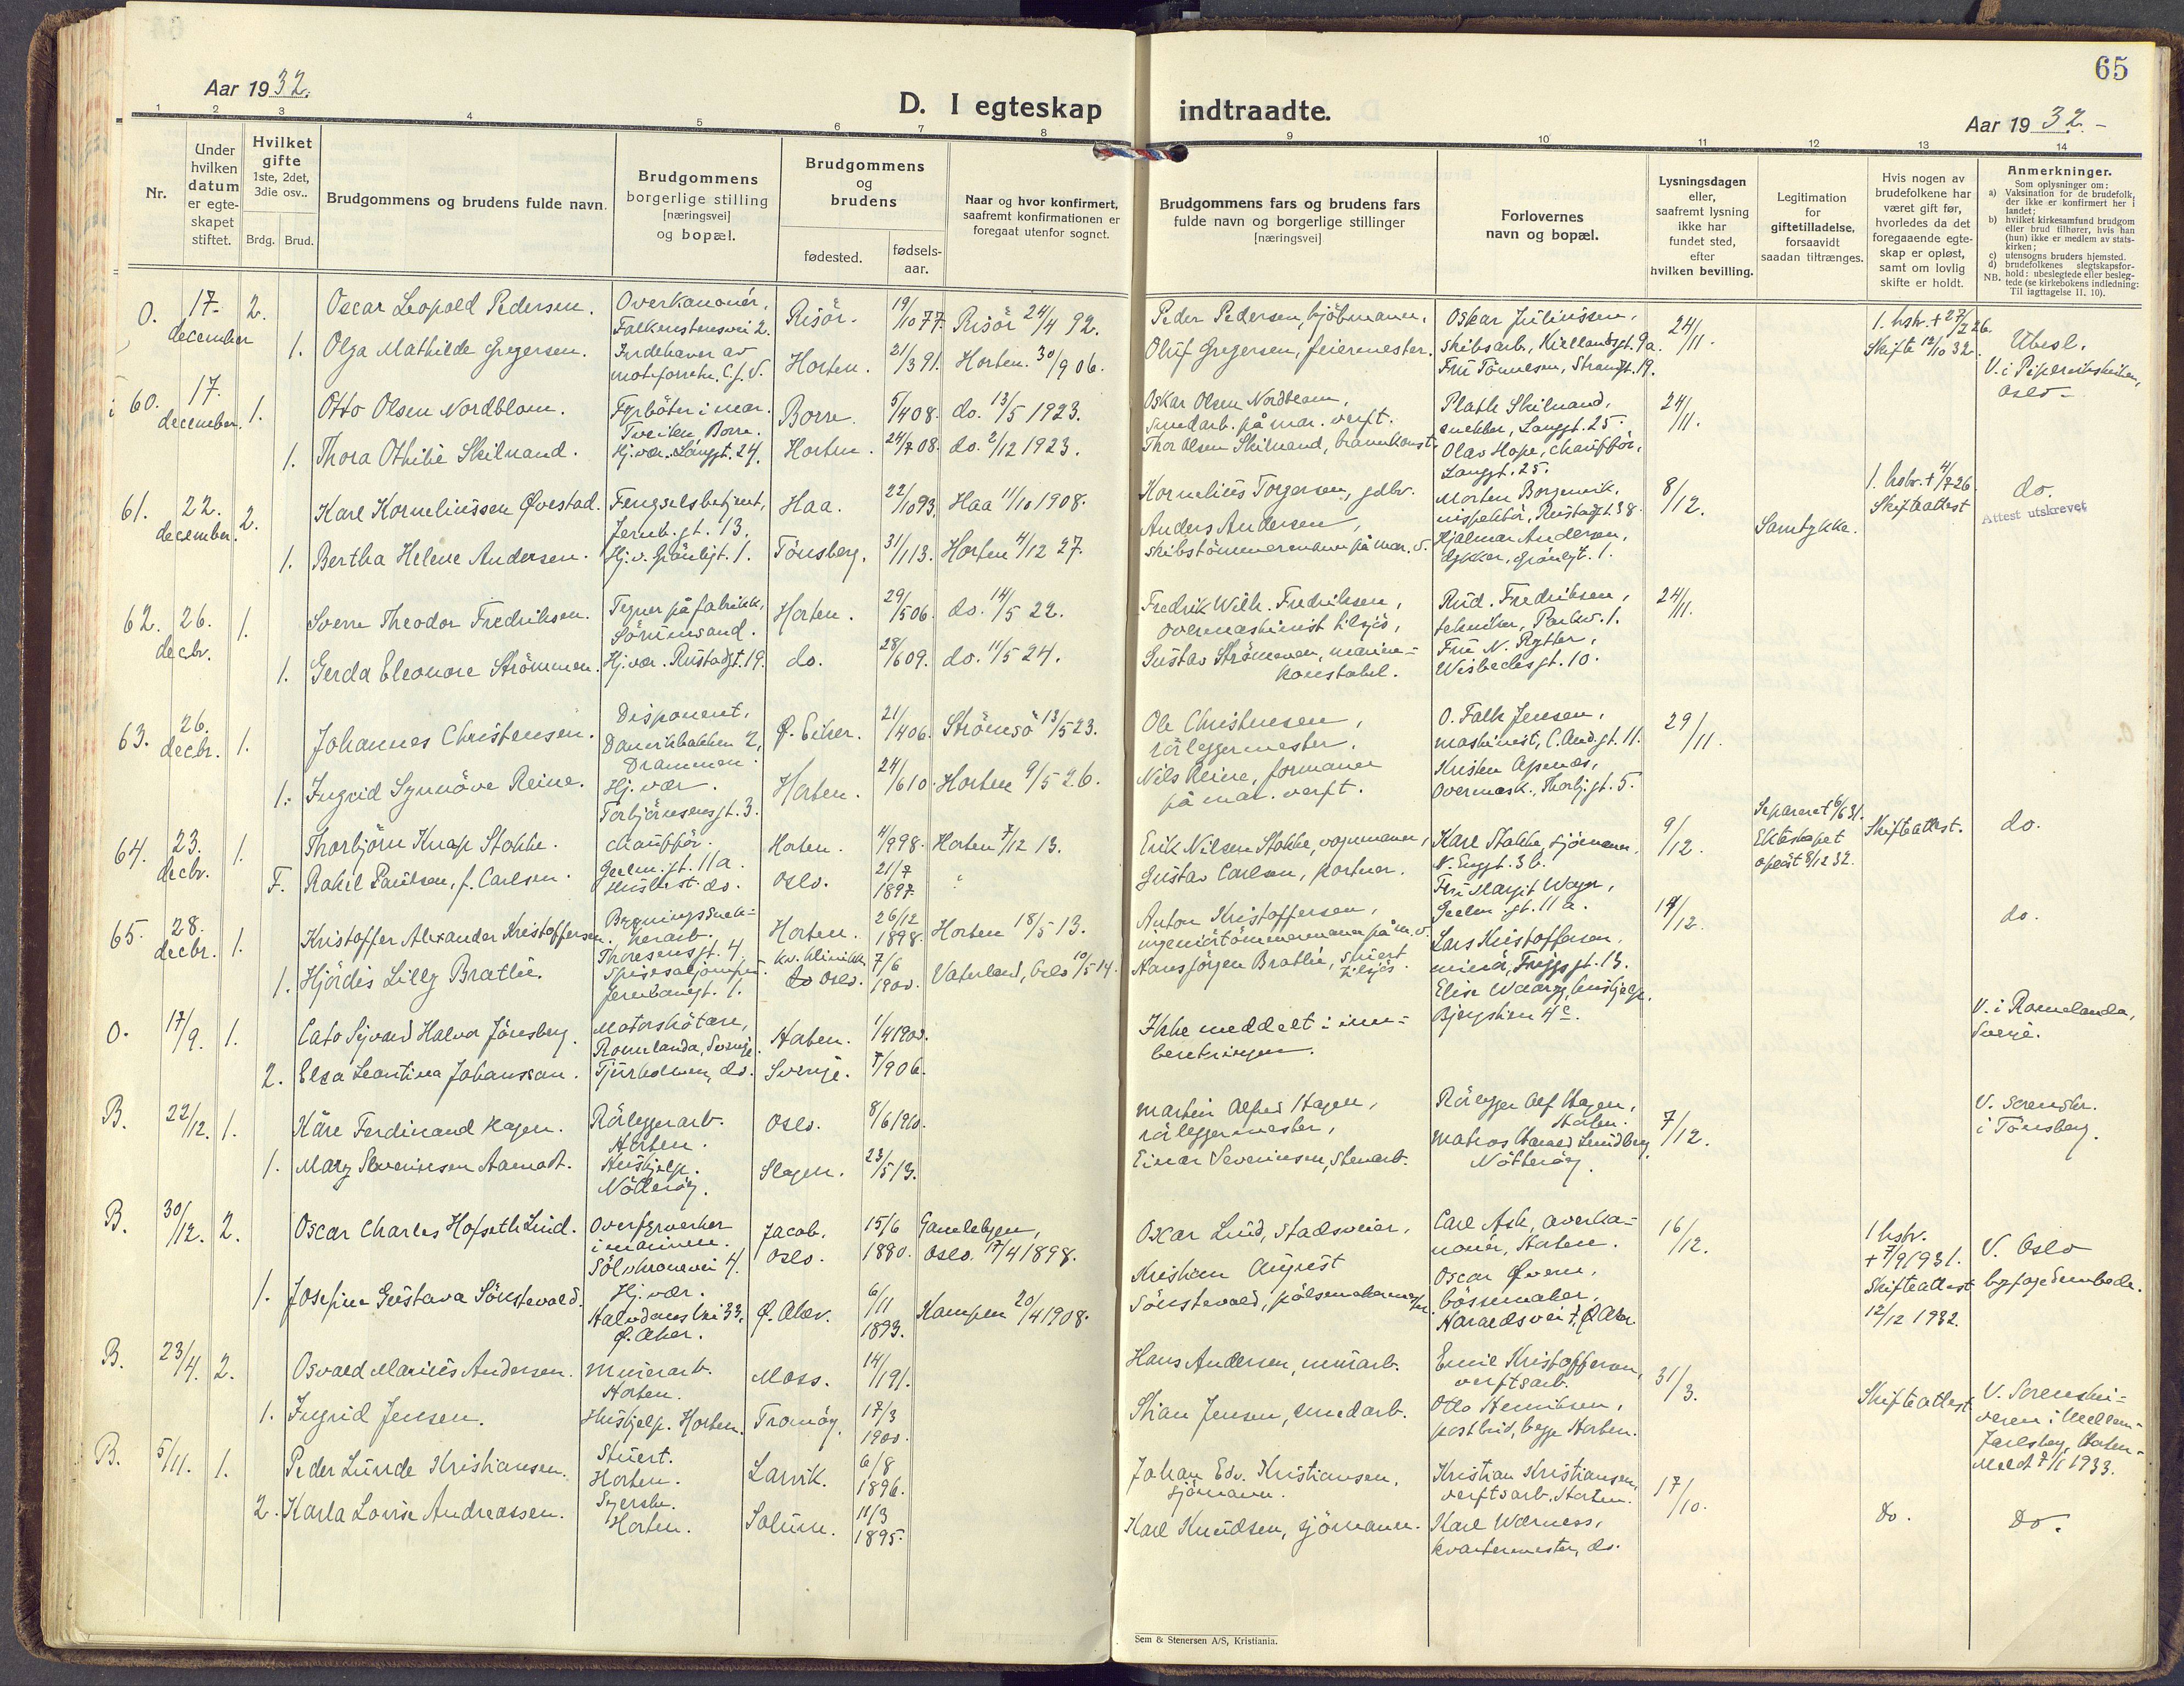 65
Aar 1932.
D. I egteskap indtraadte.
Aar 1932.-
1 2 3 4 5 6 7 8 9 10 11 12 13 14
Nr.
Under hvilken datum er egte-skapet stiftet.
Hvilket gifte 1ste, 2det, 3die osv..
Brdg. Brud.
Brudgommens og brudens fulde navn.
Brudgommens borgerlige stilling [næringsvei] og bopæl.
Brudgommens og brudens
fødested. fødsels-aar.
Naar og hvor konfirmert, saafremt konfirmationen er foregaat utenfor sognet.
Brudgommens fars og brudens fars fulde navn og borgerlige stillinger [næringsvei]
Forlovernes navn og bopæl.
Lysningsdagen eller, saafremt lysning ikke har fundet sted, efter hvilken bevilling.
Legitimation for giftetilladelse, forsaavidt saadan tiltrænges.
Hvis nogen av brudefolkene har været gift før, hvorledes da det foregaaende egte-skap er opløst, samt om lovlig skifte er holdt.
Anmerkninger.
Som oplysninger om:
a) Vaksination for de brudefolk, der ikke er konfirmert her i landet;
b) hvilket kirkesamfund brudgom eller brud tilhører, hvis han (hun) ikke er medlem av stats-kirken;
c) utensogns bruders hjemsted.
d) brudefolkenes slegtskapsfor-hold: ubeslegtede eller besleg-tede (se kirkebokens indledning: Til iagttagelse II, 10).
NB.
O. 17. december 2. Oscar Leopold Pedersen. Overkanonér, Falkenstensvei 2. Risör. 19/10 77. Risör 24/4 92. Peder Pedersen, kjöbmann. Oskar Juliussen, skibsarb., Kiellandsgt. 9a. 24/11. 1. hstr. + 27/2 26. Skifte 12/10 32. Ubesl.
1. Olga Mathilde Gregersen. Indehaver av Horten. 21/3 91. Horten. 30/9 06. Oluf Gregersen, feiermester. Fru Tönnesen, Strandgt. 19. V. i Oslo-
60. 17. december. 1. Otto Olsen Nordblom. Fyrböter i mar. Borre. Borre 5/4 08. do. 13/5 1923. Oskar Olsen Nordblom, smedarb. på mar. verft. Plath Skilnand, snekker, Langgt. 25. 24/11.
1. Thora Othilie Skilnand. Hj. vær. Langgt. 24. Horten. 24/7 08. do. 2/12 1923. Thor Olsen Skilnand, Olav Hope, chaufför, Langgt. 25.
61. 22. december. 2. Karl Korneliussen Qvestad. Fengselsbetjent, Jernb. gt. 13. Haa. 22/10 93. Haa 11/10 1908. Kornelius Torgersen, gdbr. Morten Borgersvik, Rustadgt. 38. 8/12. Samtykke. 1. hstr. + 4/7 26 Skifteattest do.
Attest utskrevet
1. Bertha Helene Andersen. Hj. v. Grönligt. 1. Tönsberg. 31/1 13. Horten 4/12 27. Anders Andersen, skibstömmermann på mar. v. Hjalmar Andersen, dykker, Grönligt. 1.
62. 26. decbr. 1. Sverre Theodor Fredriksen. Tegner på fabrikk, Sörumsand. Horten. 29/5 06. do. 14/5 22. Fredrik Wilh. Fredriksen, overmaskinist tilsjös, Rud. Fredriksen, tekniker, Parkv. 1. 24/11.
1. Gerda Eleonore Strömmen. Hj. vær. Rustadgt. 19. do. 28/6 09. do. 11/5 24. Gustav Strömmen, marine-konstabel. Fru N. Rytter, Wisbechsgt. 10.
63. 26. decbr. 1. Johannes Christensen. Disponent, Danvikbakken 2, Drammen. Ø. Eiker. 21/4 06. Strömsö 13/5 23. Ole Christensen, rörleggermester. O. Falk Jensen, maskinist, C. And. gt. 11. 29/11.
1. Ingrid Synnöve Reine. Hj. vær. Torbjörnsensgt. 3. Horten. 24/6 10. Horten 9/5 26. Nils Reine, formann på mar. verft. Kristen Apenes, overmask., Thorbj. gt. 5.
64. 23. decbr. 1. Thorbjörn Knap Stokke. chaufför. Geelm. gt. 11a. Horten. 4/9 98. Horten 7/12 13. Erik Nilsen Stokke, vognmann, Karl Stokke, sjömann, N. Enggt. 36. 9/12. Separeret 6/6 31. Ekteskapet oplöst 8/12 32. Skifteattest. do.
F. Rakel Paulsen, f. Carlsen. do. Oslo. 21/7 1897 Gustav Carlsen, portner. Fru Margit Geelm. gt. 11 a.
65. 28. decbr. 1. Kristoffer Alexander Kristoffersen. Bygningssnek-kerarb. Thoresensgt. 4. Horten. 26/12 1898. Horten 18/5 13. Anton Kristoffersen, på m. v. Lars Kristoffersen, minör, Friggsgt. 13. 14/12. do.
1. Hjördis Lilly Bratlie. Jernbanegt. 1. Kv. klinikk Oslo. 7/6 1900. Vaterland, Oslo 10/5 14. Hans Jörgen Bratlie, stuert tilsjös. Elise Bjergstien 4c.
O. 17/9. 1. Cato Sigvard Halvor Jönsberg. Motorskötare, Romelanda, Sverige. Horten. 1/4 1900. Ikke meddelt i inn-beretningen. V. i Romelanda, Sverje.
2. Elsa Leontina Johansson. Tjurholmen, do. Sverige. 7/9 06.
B. 22/12. 1. Kåre Ferdinand Hagen. Rörleggerarb. Horten. Oslo. 8/6 1910. Martin Alfred Hagen, rörleggermester, Rörlegger Alf Hagen, Horten. 7/12. V. sorenskr. i Tönsberg.
1. Mary Severinsen Aamodt. Hushjelp. Nötteröy. Slagen. 23/5 13. Einar Severinsen, Stenarb. Matros Harald Lundberg, Nötteröy.
B. 30/12. 2. Oscar Charles Hofseth Lind. Overfyrverker i marinen. Sölvkronevei 4. Jacob, Oslo. 15/6 1880. Gamlebyen, Oslo. 17/4 1898. Oscar Lind, Stadsveier. Carl Ask, overka-nonér, Horten. 16/12. 1 hstr. + 7/9 1931. Skifteattest 12/12 1932. V. Oslo byfogedembede.
1. Josefine Gustava Sönstevold. Hj. vær. Ø. Aker. Ø. Aker. 6/11 1893. Kampen 20/4 1908. Kristian August Sönstevold, pölsemakermester. Oscar Qvern, bössemaker, Haraldsvei 7, Ø. Aker.
B. 23/4. 2. Osvald Marius Andersen. Murerarb. Horten. Moss. 14/1 91. Hans Andersen, murarb. Emil Kristoffersen, verftsarb. 31/3. Skifteattest V. Sorenskri-veren i Mellem-Jarlsberg, Horten- Meldt 7/1 1933.
1. Ingrid Jensen. Hushjelp. Horten. Tromöy. 17/3 1900. Stian Jensen, smedarb. Otto Henriksen, postbud, begge Horten.
B. 5/11. 1. Peder Lunde Kristiansen. Stuert. Horten. Larvik. 6/8 1896. Johan Edv. Kristiansen, sjömann. Kristian Kristiansen, verftsarb. Horten. 17/10. do. do.
2. Karla Lovise Andreassen. Syerske. Horten. Solum. 11/3 1895. Karl Knudsen, sjömann. Karl Wærness, kvartermester, do.
Sem & Stenersen A/S, Kristiania.